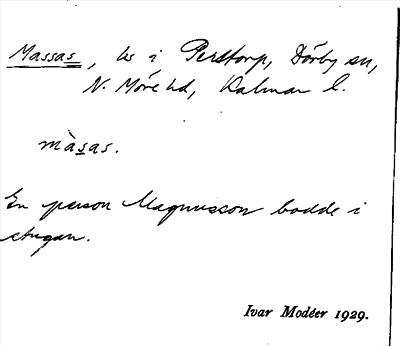 Massas, ls i Perstorp, Dörby sn,
N. Möre hd, Kalmar l.
màsas.
En person Magnusson bodde i
stugan.
Ivar Modéer 1929.